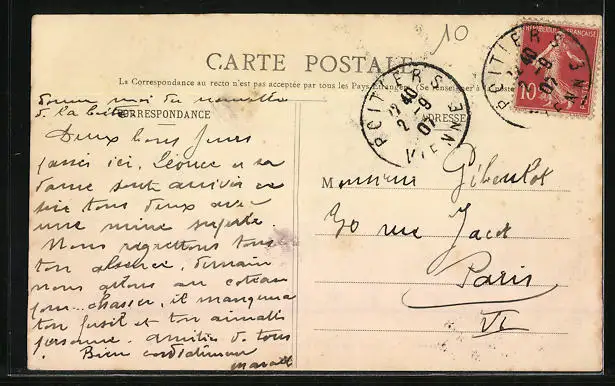 10
CARTE POSTALE
La Correspondance au recto n'est pas acceptée par tous les Pays Etrangers (Se renseigner à la Poste
RÉPUBLIQUE FRANÇAISE
10
POITIERS
22 40
2 - 9
07
VIENNE
POITIERS
40
9
07
VIENNE
donne moi de nouvelle
de la
CORRESPONDANCE
ADRESSE
Deux bons jours
passés ici, Léonce et sa
dame sont arrivés ce
soir tous deux avec
une mine superbe.
Nous regrettons tous
ton absence, demain
nous allons au coteau
pour chasser, il manquera
ton fusil et ton aimable
personne. amitiés de tous
Bien cordialement
Monsieur
30 rue Jacob
Paris
VI